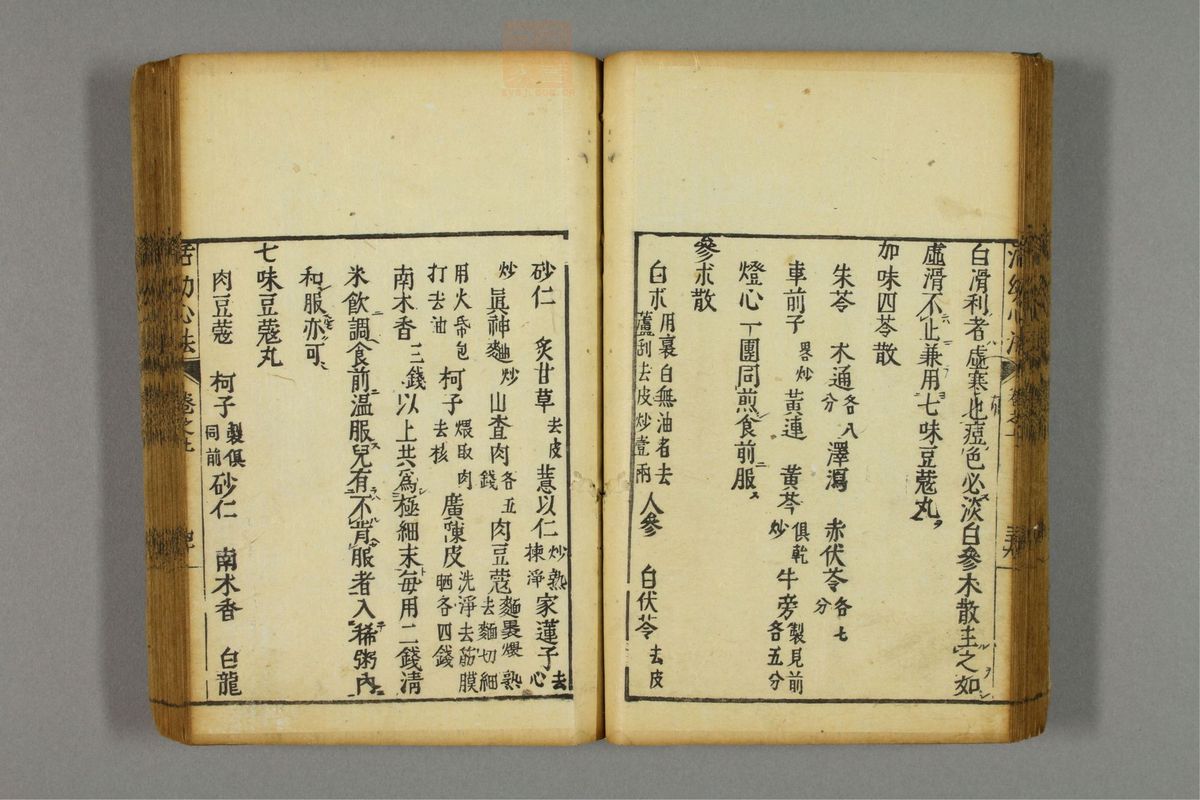 白滑利者虛寒也痘色必淡白參朮散主之如
虛滑不止兼用七味豆蔻丸
加味四苓散
朱苓 木通各八分 澤瀉 赤伏苓各七分
車前子畧炒 黃連 黃芩俱乾炒 牛旁製見前各五分
燈心一團同煎食前服
參朮散
白朮用裏白無油者去蘆刮去皮炒壹兩 人參 白伏苓去皮
砂仁 炙甘草去皮 薏以仁炒熟揀淨 家蓮子去心
炒 眞神麯炒 山查肉各五錢 肉豆蔻麵裹煨熟去麵切細
用火帋包打去油 柯子煨取肉去核 廣陳皮洗淨去筋膜晒各四錢
南木香三錢 以上共爲極細末每用二錢淸
米飲調食前溫服兒有不肯服者入稀粥內
和服亦可
七味豆蔻丸
肉豆蔻 柯子製俱同前 砂仁 南木香 白龍
活幼心法
卷之七